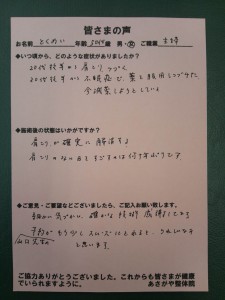 皆さまの声
お名前 とくめい 年齢 50才 歳 男・女 ご職業 主婦
◆いつ頃から、どのような症状がありましたか？
20代後半から肩こりがつづく
20代後半から不眠症で薬を服用しつづけて
今減薬しようとしている
◆施術後の状態はいかがですか？
肩こりが確実に解消する
肩こりのない日をすごすのは何十年ぶりで？
◆ご意見・ご要望などございましたら、ご記入お願い致します。
細かい気づかい、確かな技術 感謝してます
予約がもう少しスムーズにとれると、うれしいなと
思います。
ご協力ありがとうございました。これからも皆さまが健康
でいられますように。 あさがや整体院